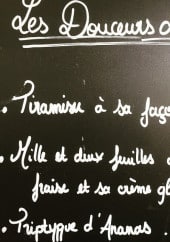 Les Douceurs
• Tiramisu à sa faço
• Mille et deux feuilles
fraise et sa crème gl
• Triptyque d'Ananas.